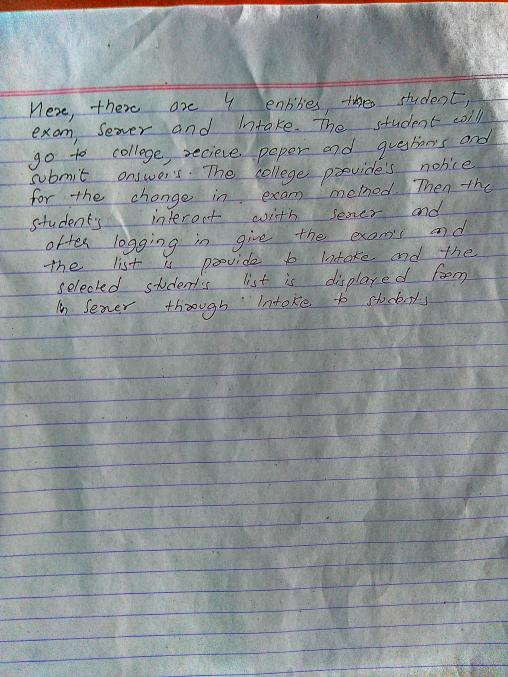 Here, there are 4 entities, the student,
exam, server and Intake. The student will
go to college, recieve paper and questions and
submit answers. The college provide's notice
for the change in exam method. Then the
student's interact with server and
after logging in give the exam's and
the list is provide to Intake and the
selected student's list is displayed from
in server through Intake to students